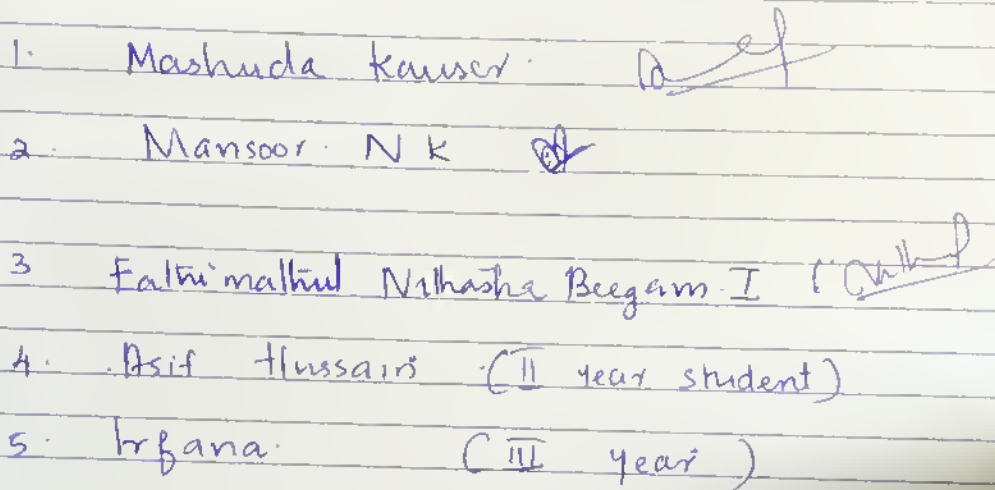 1. Mashuda Kauser.
2. Mansoor. N K
3 Fathimathul Nathasha Beegam. I
4. Asif Hussain (II year student)
5. Irfana. (III year)